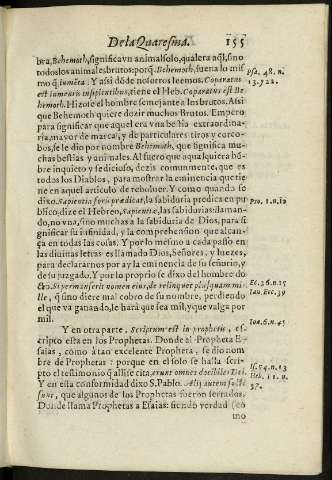 De la Quaresma. 155
bra, Behemoth, significa vn animal solo, qualera aql, sino
todos los animales brutos: porq̃. Behemoth, suena lo mis
mo q̃ iumẽta. Y assi dõde nosotros leemos. Coparatus
est iumentis insipientibus, tiene el Heb. Coparatus est Be
hemoth. Hizose el hombre semejante a los brutos. Assi
que Behemoth quiere dezir muchos Brutos. Empero
para significar que aquel era vna bestia extraordina-
ria, mayor de marca, y de particulares tiros y corco-
bos, se le dio por nombre Behemoth, que significa mu-
chas bestias y animales. Al fuero que aqui a quiera hõ-
bre inquieto y sedicioso, dezis communmente, que es
todos los Diablos, para mostrar la eminencia que tie
ne en aquel articulo de reboluer. Y como quando se
dixo. Sapientia foris prædicat, la sabiduria predica en pu
blico, dize el Hebreo, Sapientia, las sabidurias: llaman-
do, no vna, sino muchas a la sabiduria de Dios, para si-
gnificar su inmensidad, y la comprehension que alcan-
ça en todas las cosas. Y por lo mesmo a cada passo en
las diuinas letras es llamado Dios, Señores, y Iuezes,
para declararnos por ay la eminencia de su señorio, y
de su juzgado. Y por lo proprio se dixo del hombre do
cto. Si permanserit nomen eius, derelinquet plusquam mi-
lle, q̃ si no diere mal cobro de su nombre, perdiendo
el que va ganando, le hará que sea mil, y que valga por
mil.
Y en otra parte, Scriptum est in prophetis, es-
cripto esta en los Prophetas. Donde al Propheta E-
saias, como a tan excelente Propheta, se dio nom-
bre de Prophetas: porque en el solo se halla scrip-
to el testimonio q̃ alli se cita, erunt omnes docibiles Dei.
Y en esta conformidad dixo S. Pablo. Alij autem secti
sunt, que algunos de los Prophetas fueron serrados.
Donde llama Prophetas a Esaias: siendo verdad (co
mo
Psa. 48. n.
13. & 21.
Pro. 1. n. 20
Ec. 36. n. 15
Ioa. 6. n. 45
Is. 54. n. 13
Heb. 11. n.
37.